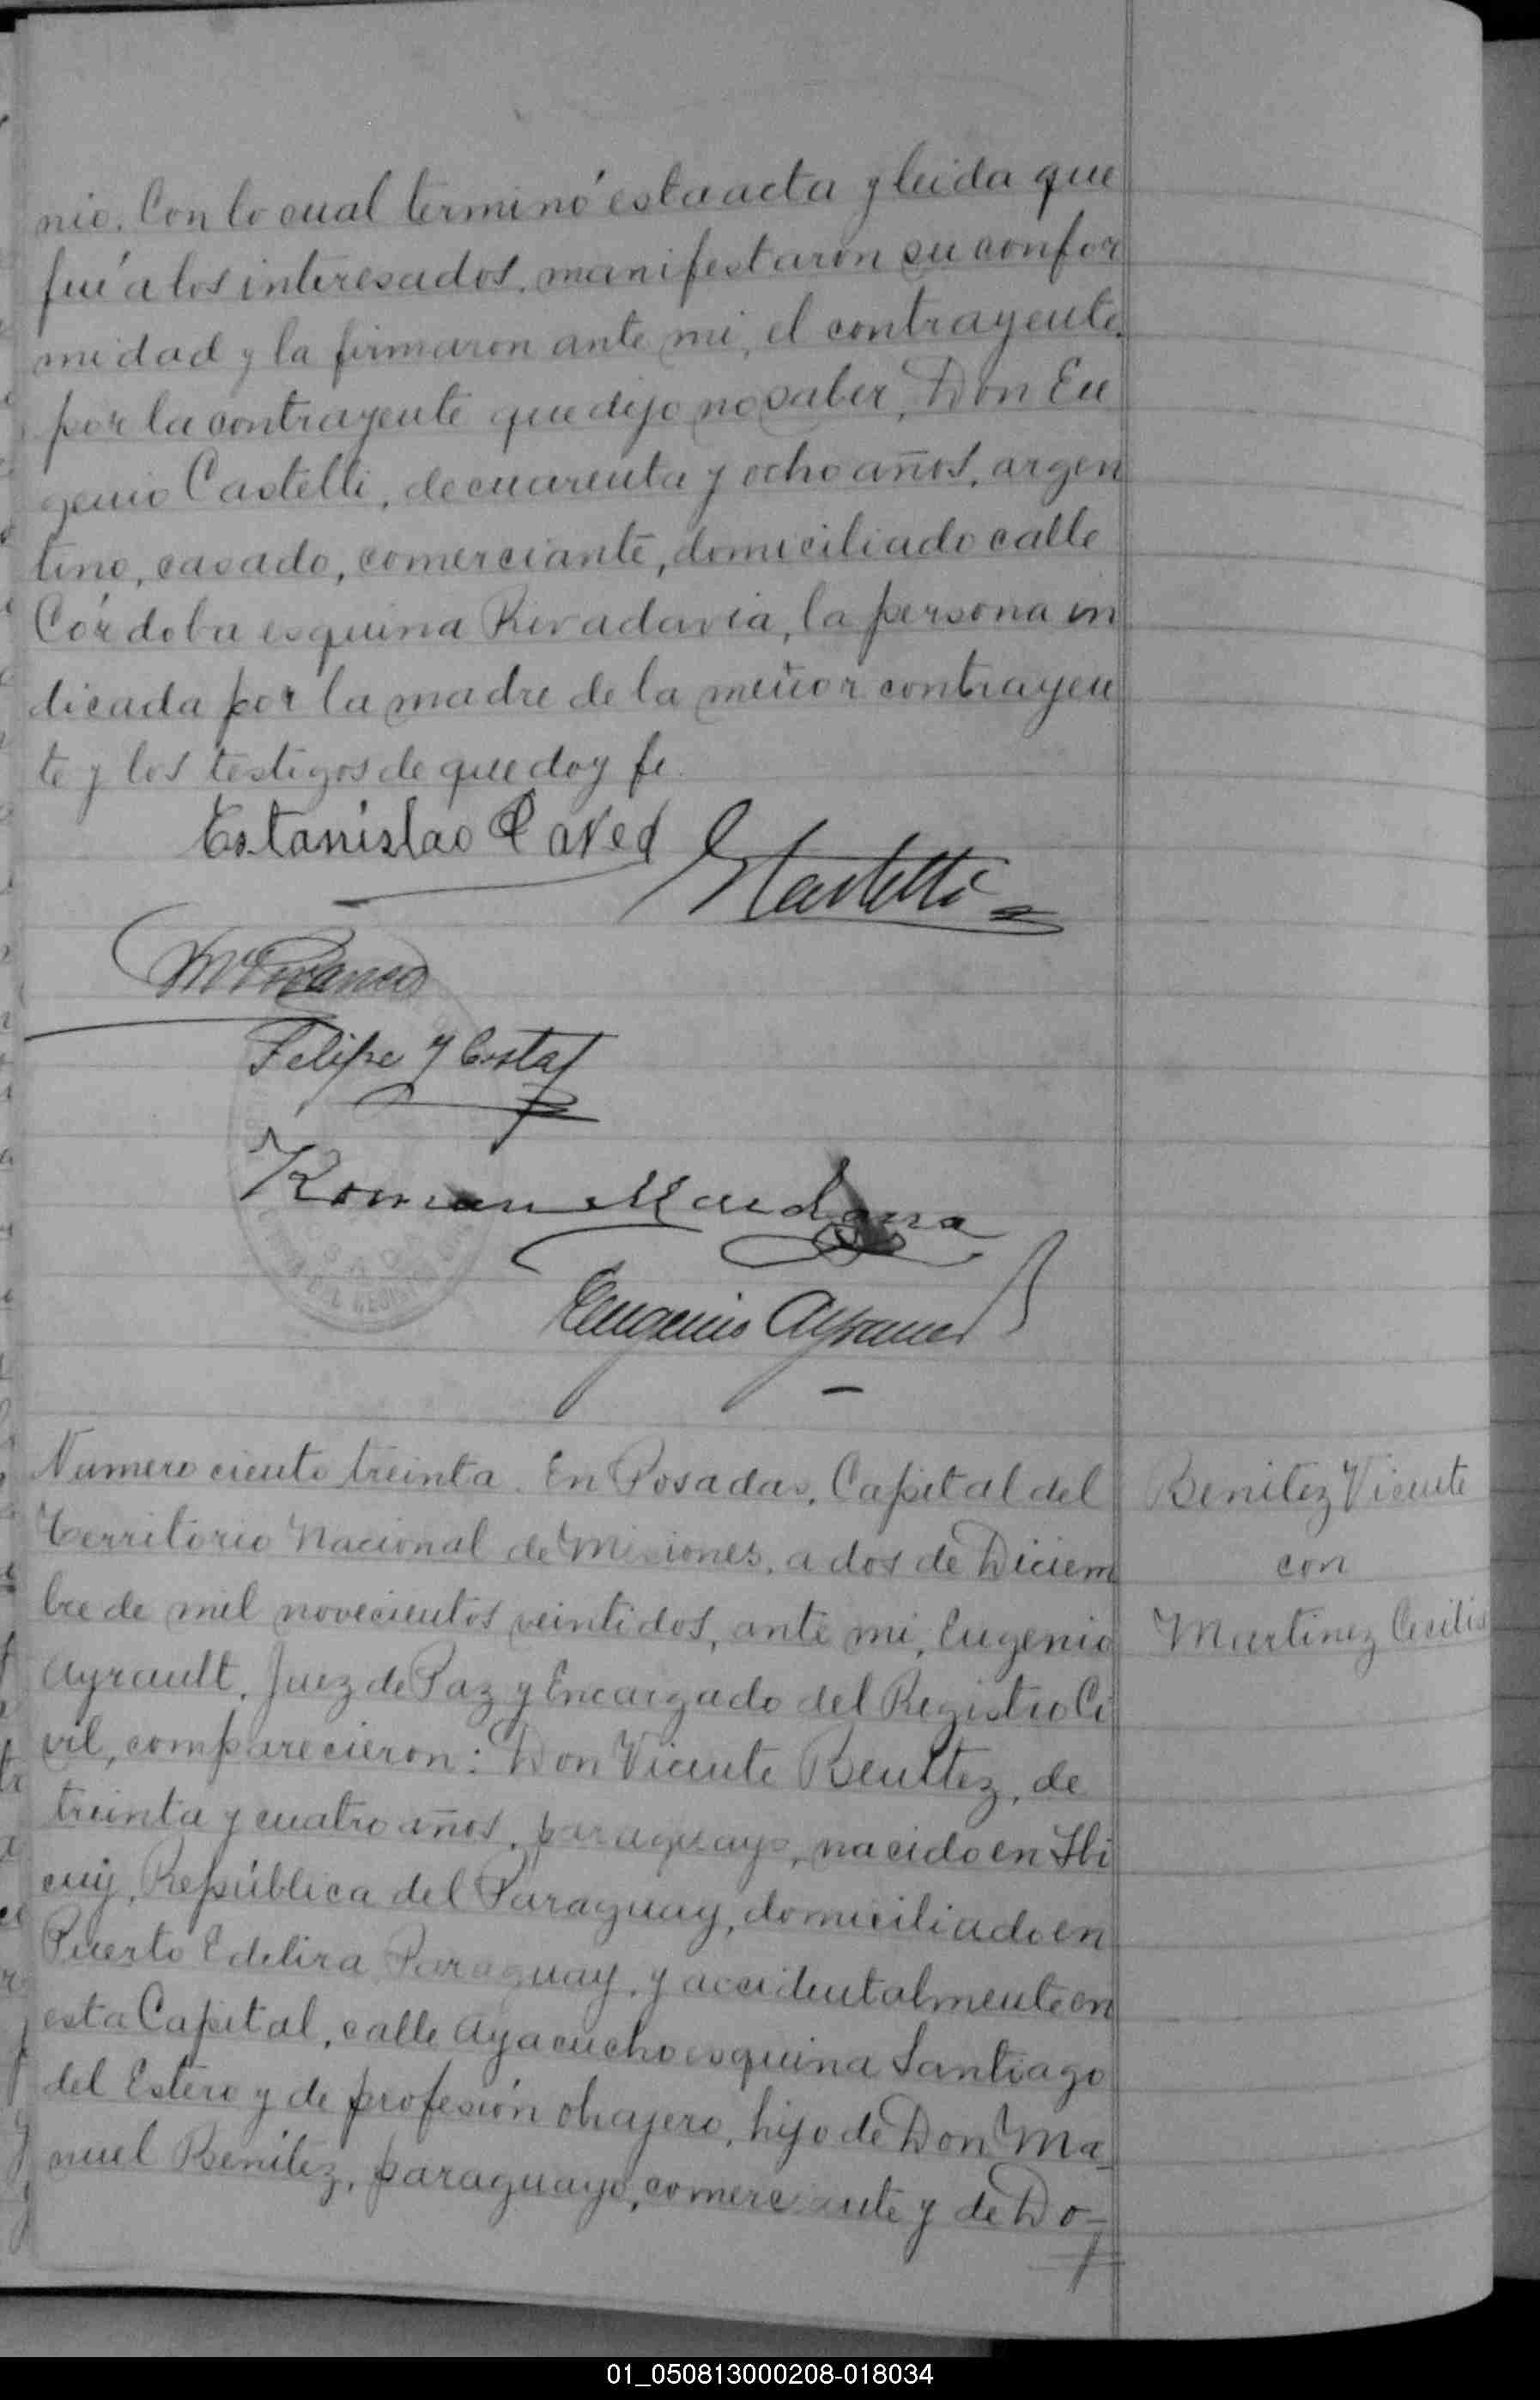 nio. Con lo cual terminó esta acta y leida que
fué a los interesados, manifestaron su confor
midad y la firmaron ante mi, el contrayente,
por la contrayente que dijo no saber, Don Eu
genio Castelli, de cuarenta y ocho años, argen
tino, casado, comerciante, domiciliado calle
Córdoba esquina Rivadavia, la persona in
dicada por la madre de la menor contrayen
te y los testigos de que doy fe.
Estanislao
ECastelli
Felipe Y Costa
Roman
Eugenio Ayrault
Numero ciento treinta. En Posadas, Capital del
Territorio Nacional de Misiones, a dos de Diciem
bre de mil novecientos veintidos, ante mi, Eugenio
Ayrault, Juez de Paz y Encargado del Registro Ci
vil, comparecieron: Don Vicente Benitez, de
treinta y cuatro años, paraguayo, nacido en Ibi
cuy, República del Paraguay, domiciliado en
Puerto Edelira Paraguay, y accidentalmente en
esta Capital, calle Ayacucho esquina Santiago
del Estero y de profesión obajero, hijo de Don Ma
nuel Benitez, paraguayo, comerciante y de Do-
Benitez Vicente
con
Martinez Cecilia
01_050813000208-018034